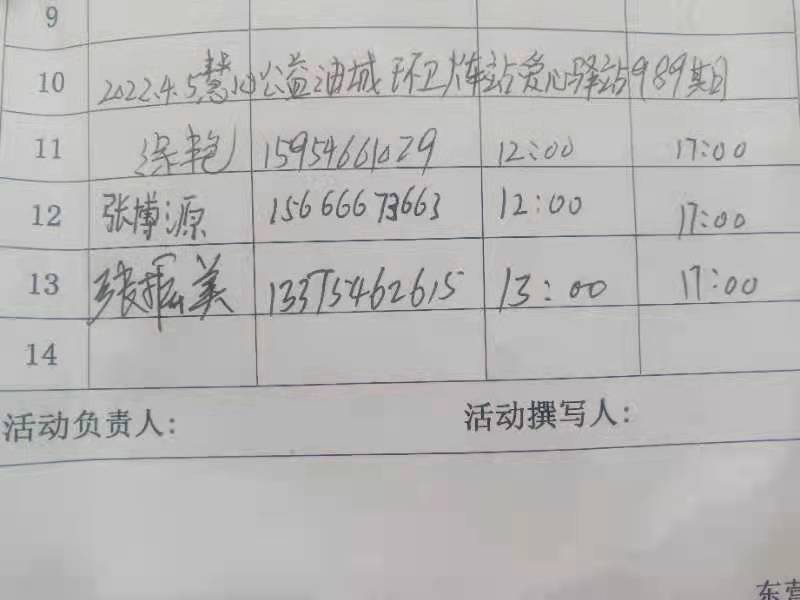 9
10 2022.4.5慧心公益油城环卫火车站爱心驿站989期
11 徐艳 15954661029 12:00 17:00
12 张博源 15666673663 12:00 17:00
13 张振美 13375462615 13:00 17:00
14
活动负责人: 活动撰写人:
东营